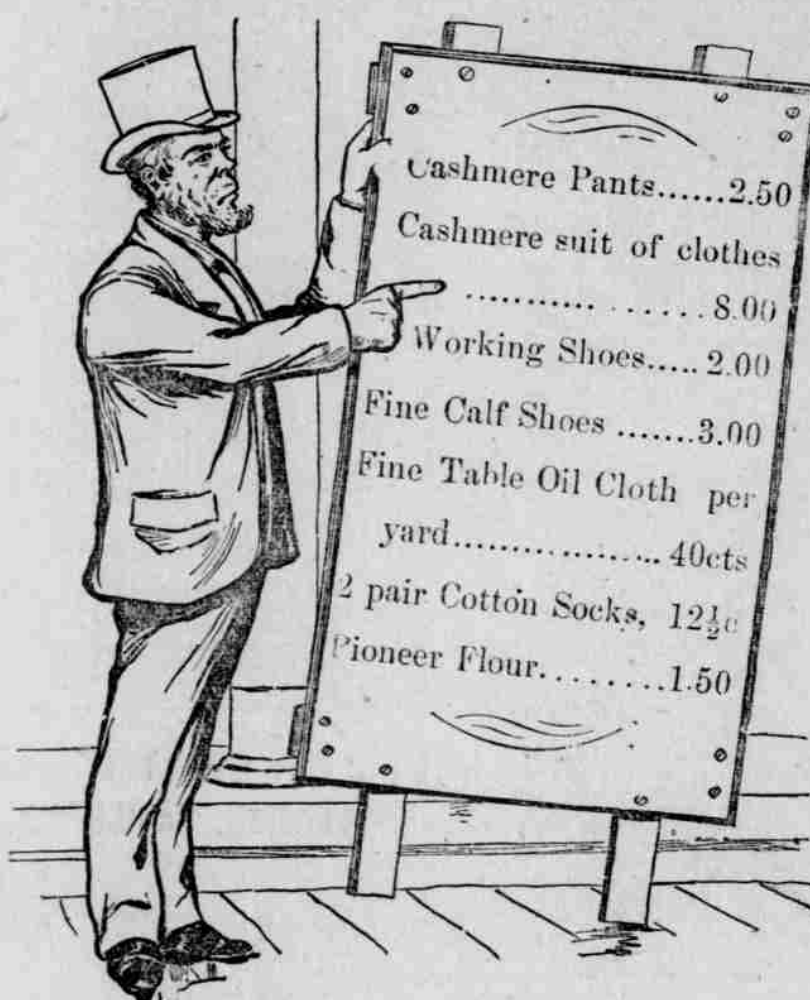 Cashmere Pants......2.50
Cashmere suit of clothes
........... ....... 8.00
Working Shoes..... 2.00
Fine Calf Shoes .......3.00
Fine Table Oil Cloth per
yard.................. 40cts
2 pair Cotton Socks, 12½c
Pioneer Flour.........1.50